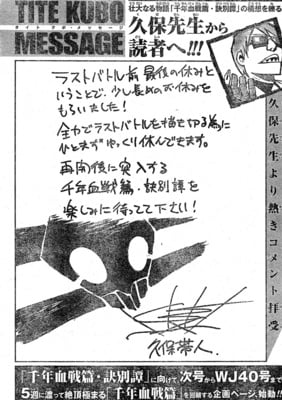 TITE KUBO
タイト クボ・メッセージ
MESSAGE
壮大なる物語「千年血戦篇・訣別譚」の構想を練る
久保先生から
読者へ!!!
ラストバトル前 最後の休みと
いうことで、少し長めのお休みを
もらいました!
全力でラストバトルを描き切る為に
ひとまずゆっくり休んできます。
再開後に突入する
千年血戦篇・訣別譚を
楽しみに待ってて下さい!
久保帯人.
久保先生より熱きコメント拝受
「千年血戦篇・訣別譚」に向けて、次号からWJ40号まで
5週に渡って絶頂極まる「千年血戦篇」を回顧する企画ページ、始動!!